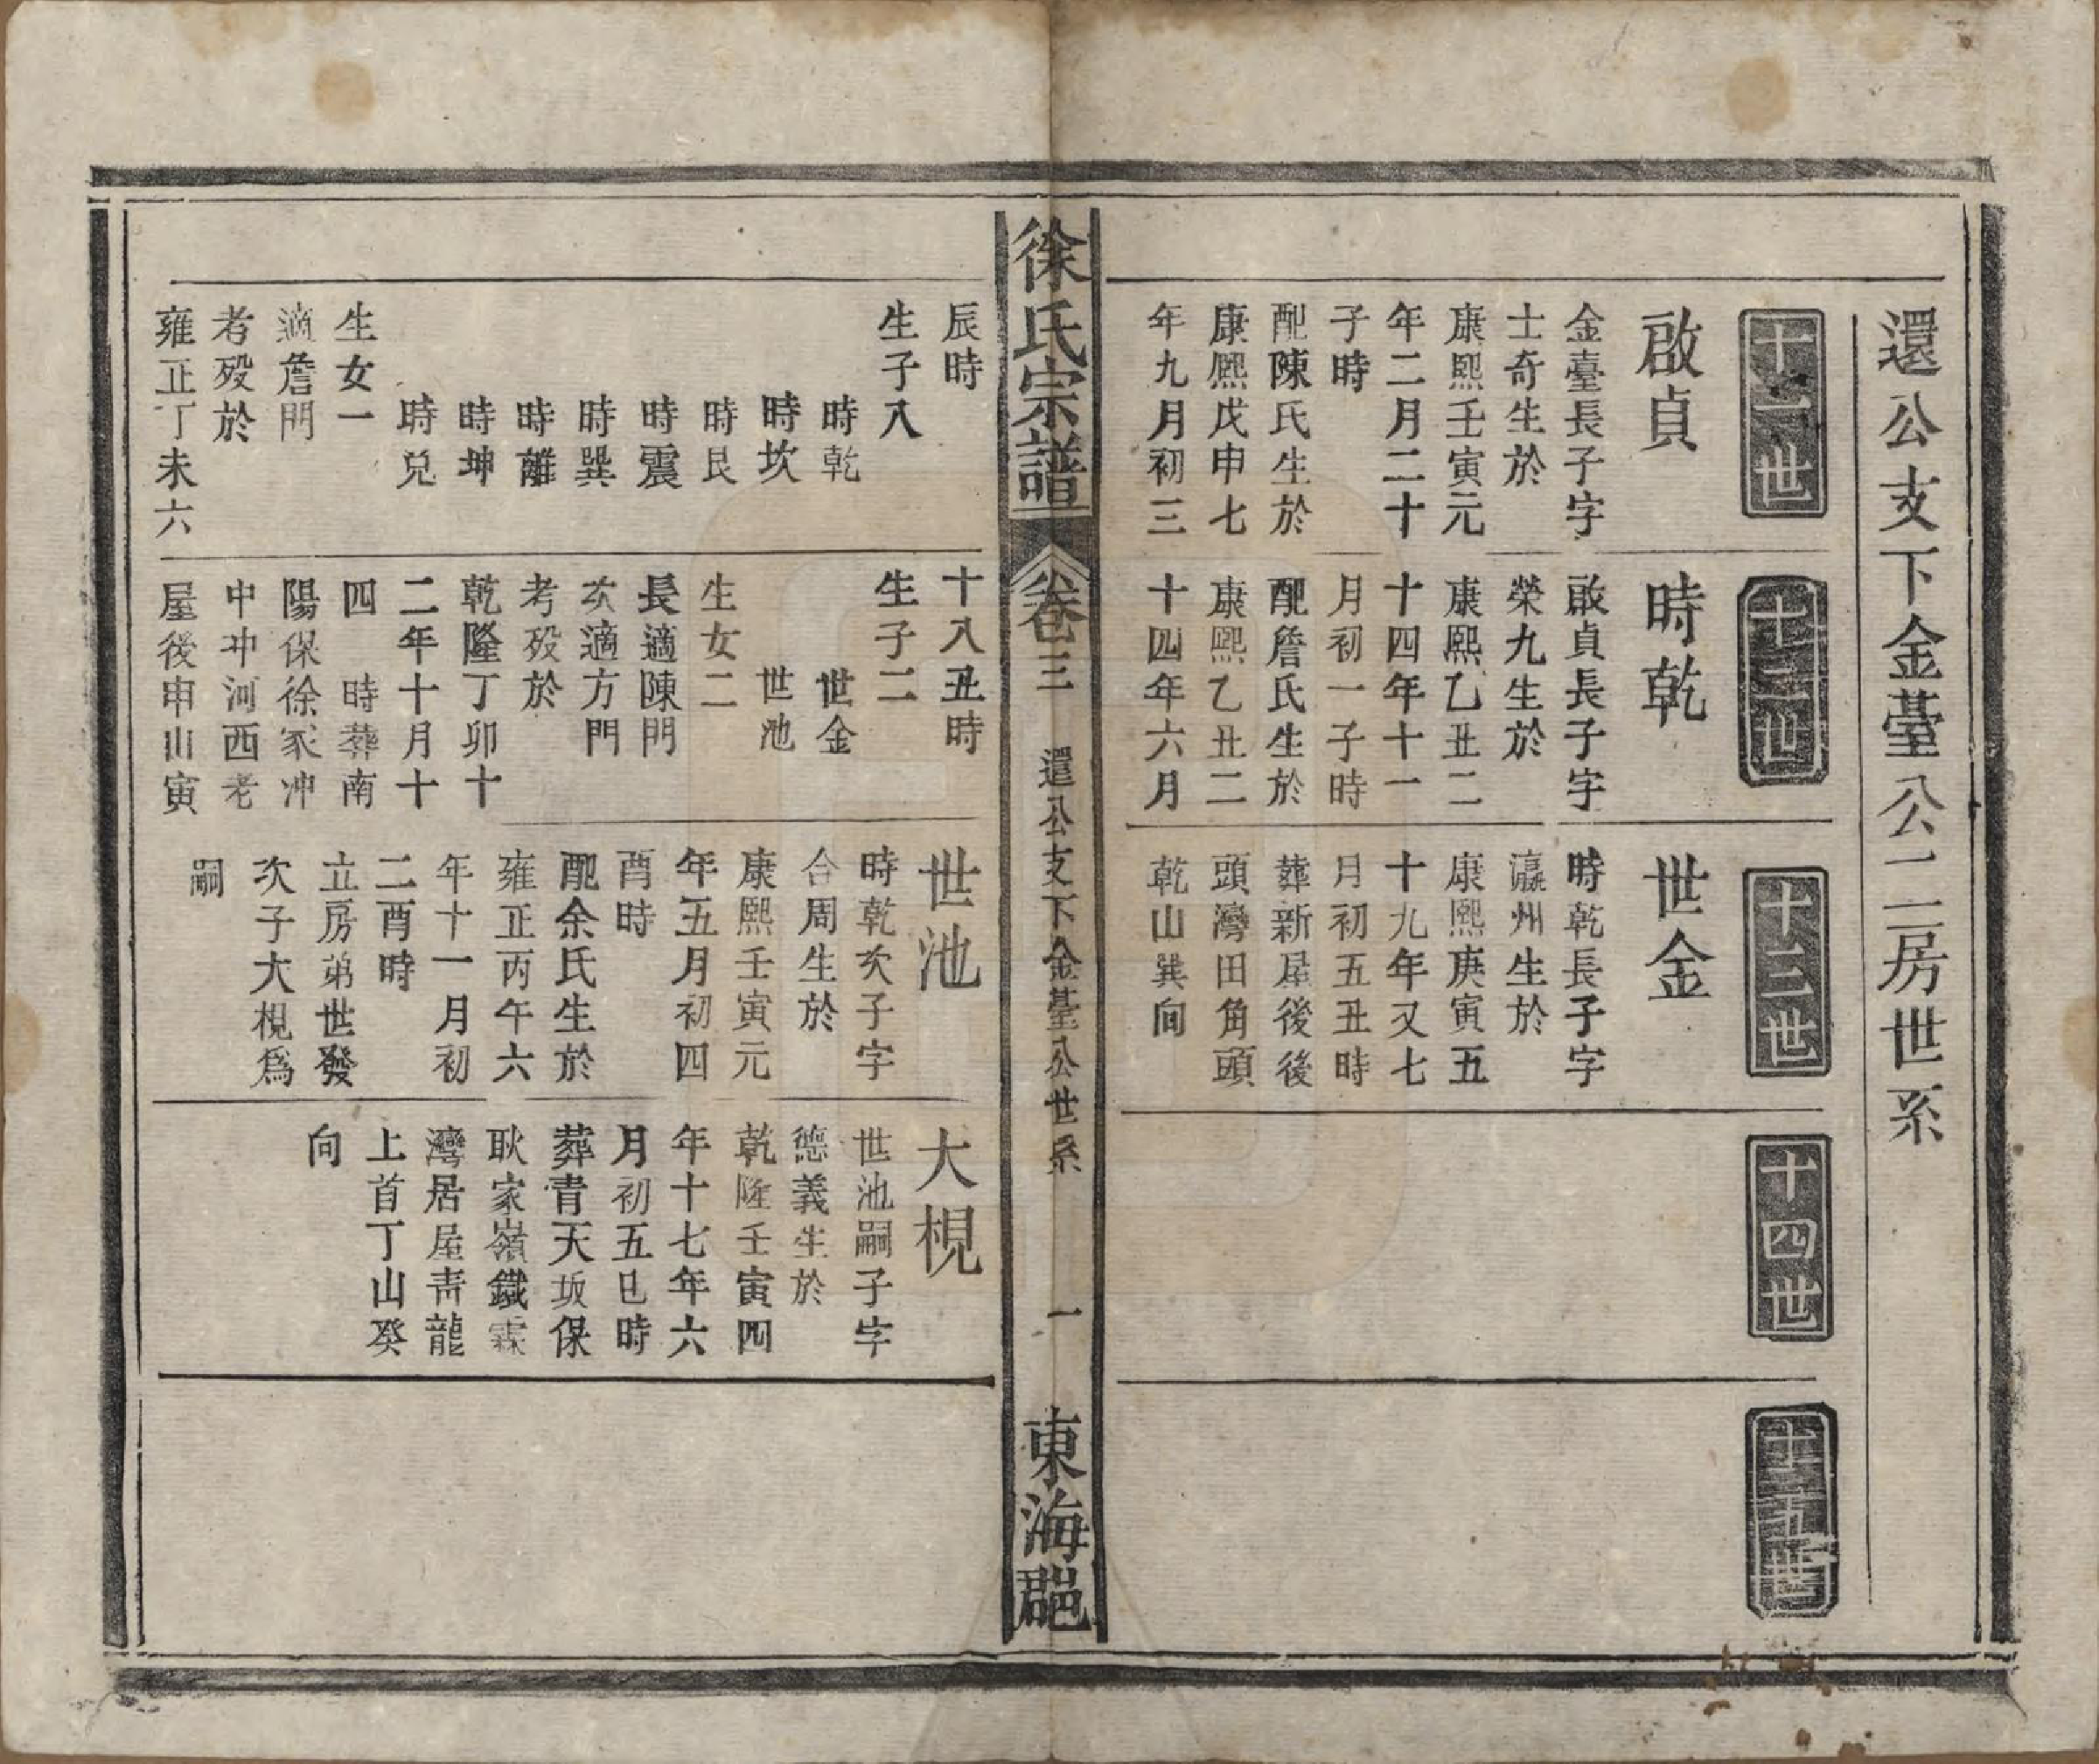 還公支下金臺公二房世系
十一世
啟貞
金臺長子字
士奇生於
康熙壬寅元
年二月二十
子時
配陳氏生於
康熙戊申七
年九月初三
十二世
時乾
啟貞長子字
榮九生於
康熙乙丑二
十四年十一
月初一子時
配詹氏生於
康熙乙丑二
十四年六月
十三世
世金
時乾長子字
瀛州生於
康熙庚寅五
十九年又七
月初五丑時
葬新屋後後
頭灣田角頭
乾山巽向
十四世
十五世
徐氏宗譜
卷三
還公支下金臺公世系
一
東海郡
辰時
生子八
時乾
時坎
時艮
時震
時巽
時離
時坤
時兌
生女一
適詹門
考歿於
雍正丁未六
十八丑時
生子二
世金
世池
生女二
長適陳門
次適方門
考歿於
乾隆丁卯十
二年十月十
四　時葬南
陽保徐家冲
中冲河西老
屋後申山寅
世池
時乾次子字
合周生於
康熙壬寅元
年五月初四
酉時
配余氏生於
雍正丙午六
年十一月初
二酉時
立房弟世發
次子大梘為
嗣
大梘
世池嗣子字
德義生於
乾隆壬寅四
年十七年六
月初五巳時
葬青天坂保
耿家嶺鐵霖
灣居屋青龍
上首丁山癸
向